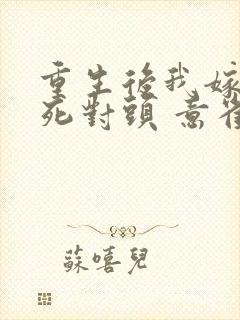 重生後我嫁
死對頭 意
蘇嘻兒